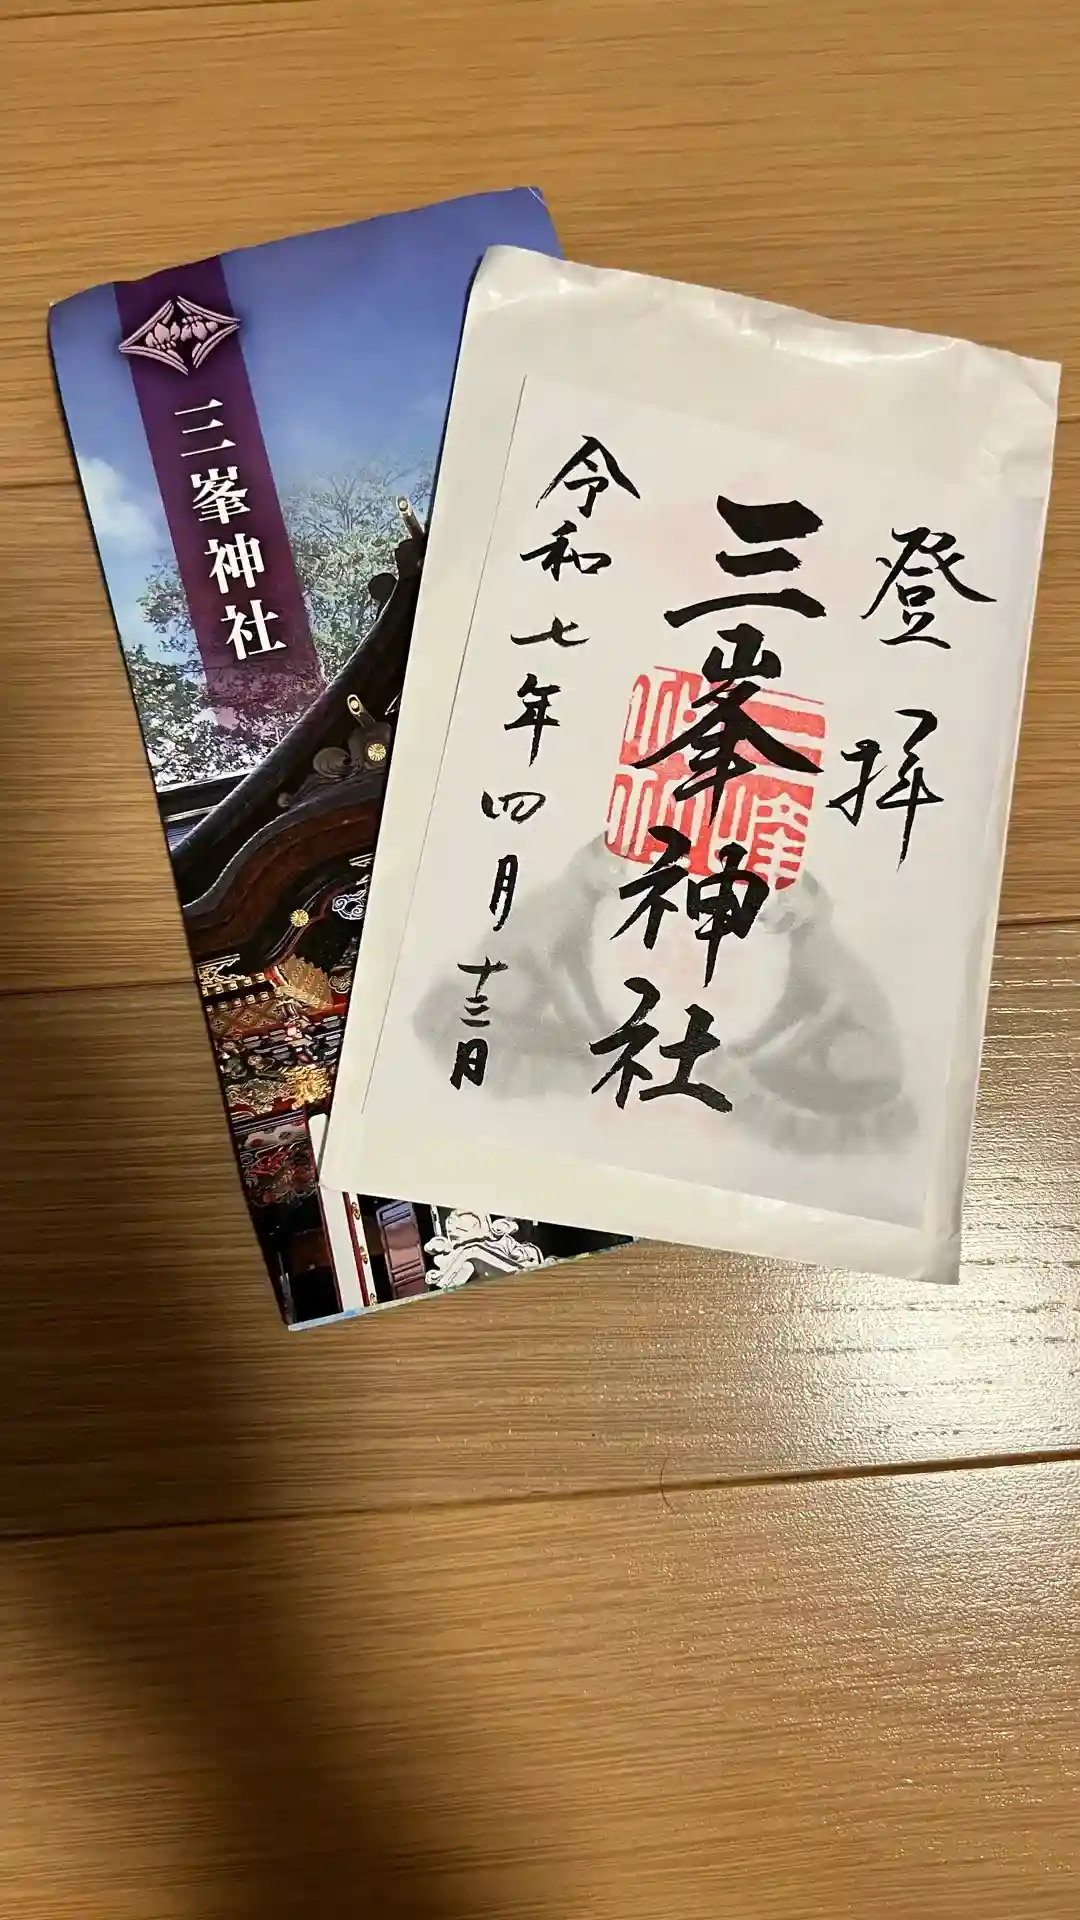 三峯神社
登拝
三峯神社
令和七年四月十三日